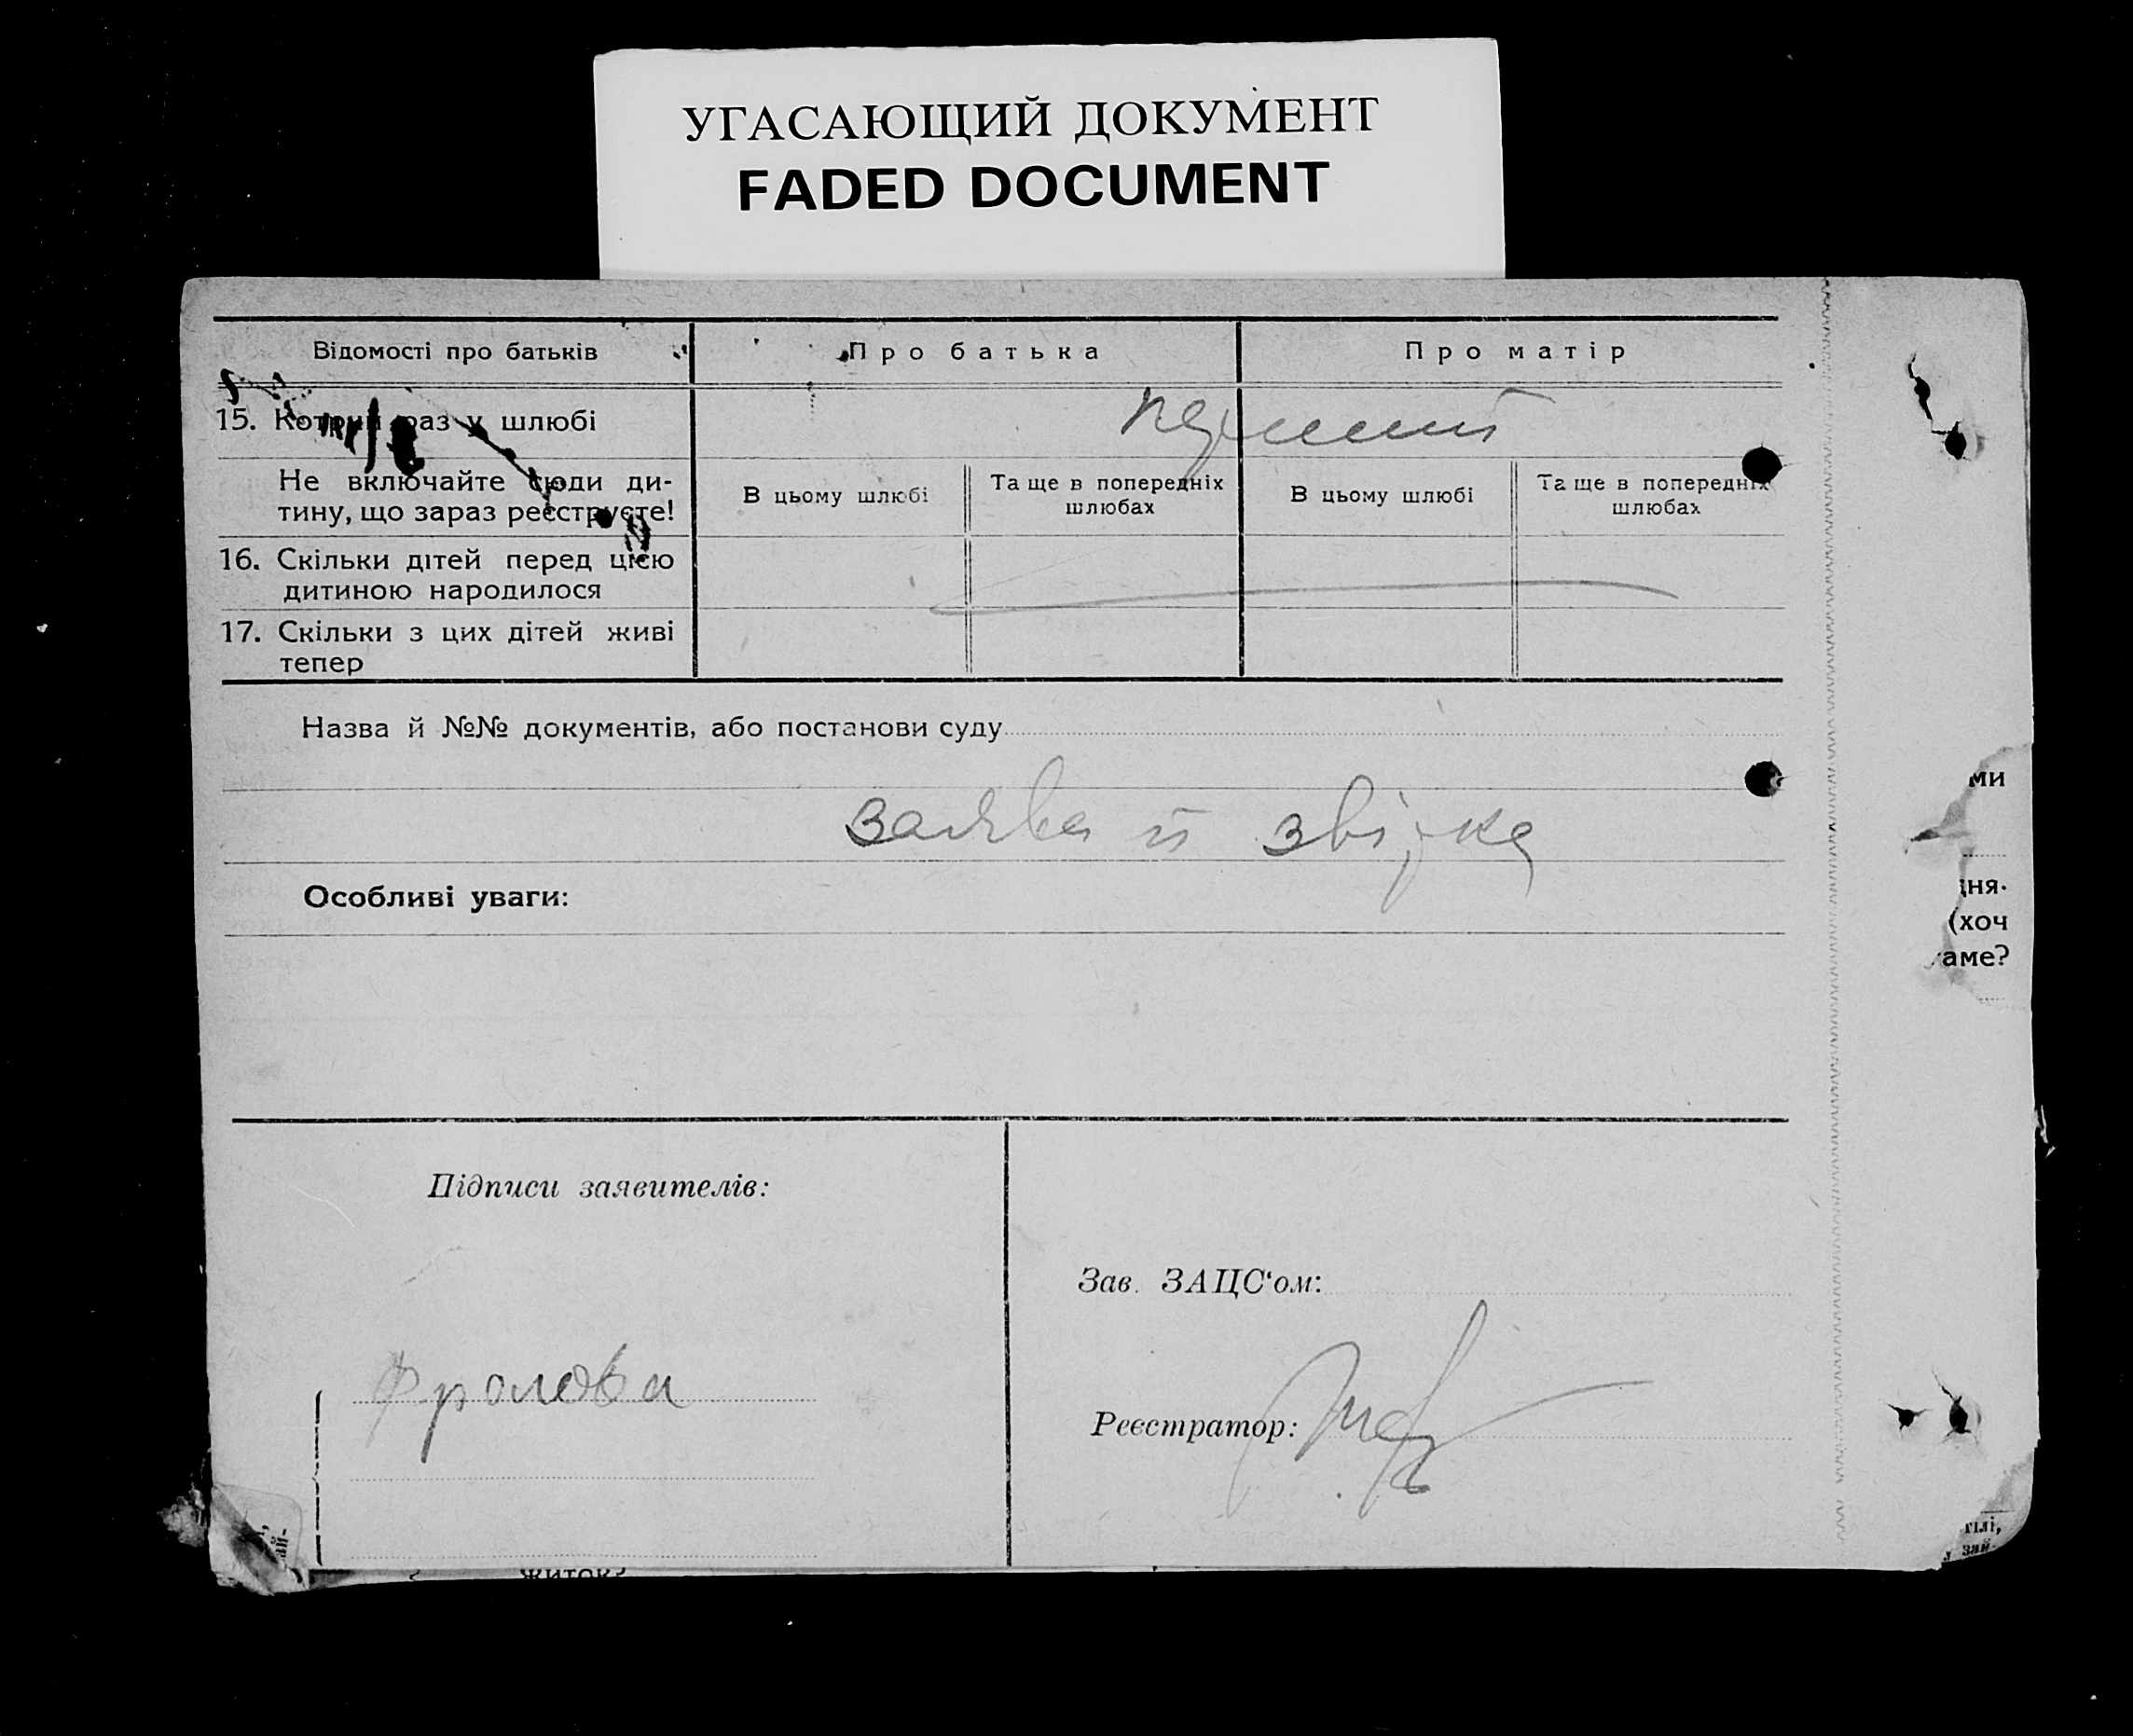 УГАСАЮЩИЙ ДОКУМЕНТ
FADED DOCUMENT
Відомості про батьків
Про батька
Про матір
15. Котрий раз у шлюбі
перший
Не включайте сюди ди-
тину, що зараз реєструєте!
В цьому шлюбі
Та ще в попередніх
шлюбах
В цьому шлюбі
Та ще в попередніх
шлюбах
16. Скільки дітей перед цією
дитиною народилося
17. Скільки з цих дітей живі
тепер
Назва й №№ документів, або постанови суду
заява й звірка
Особливі уваги:
Підписи заявителів:
Фролова
Зав. ЗАЦС‘ом:
Реєстратор:
ми
дня.
(хоч
аме?
зай-
житок?